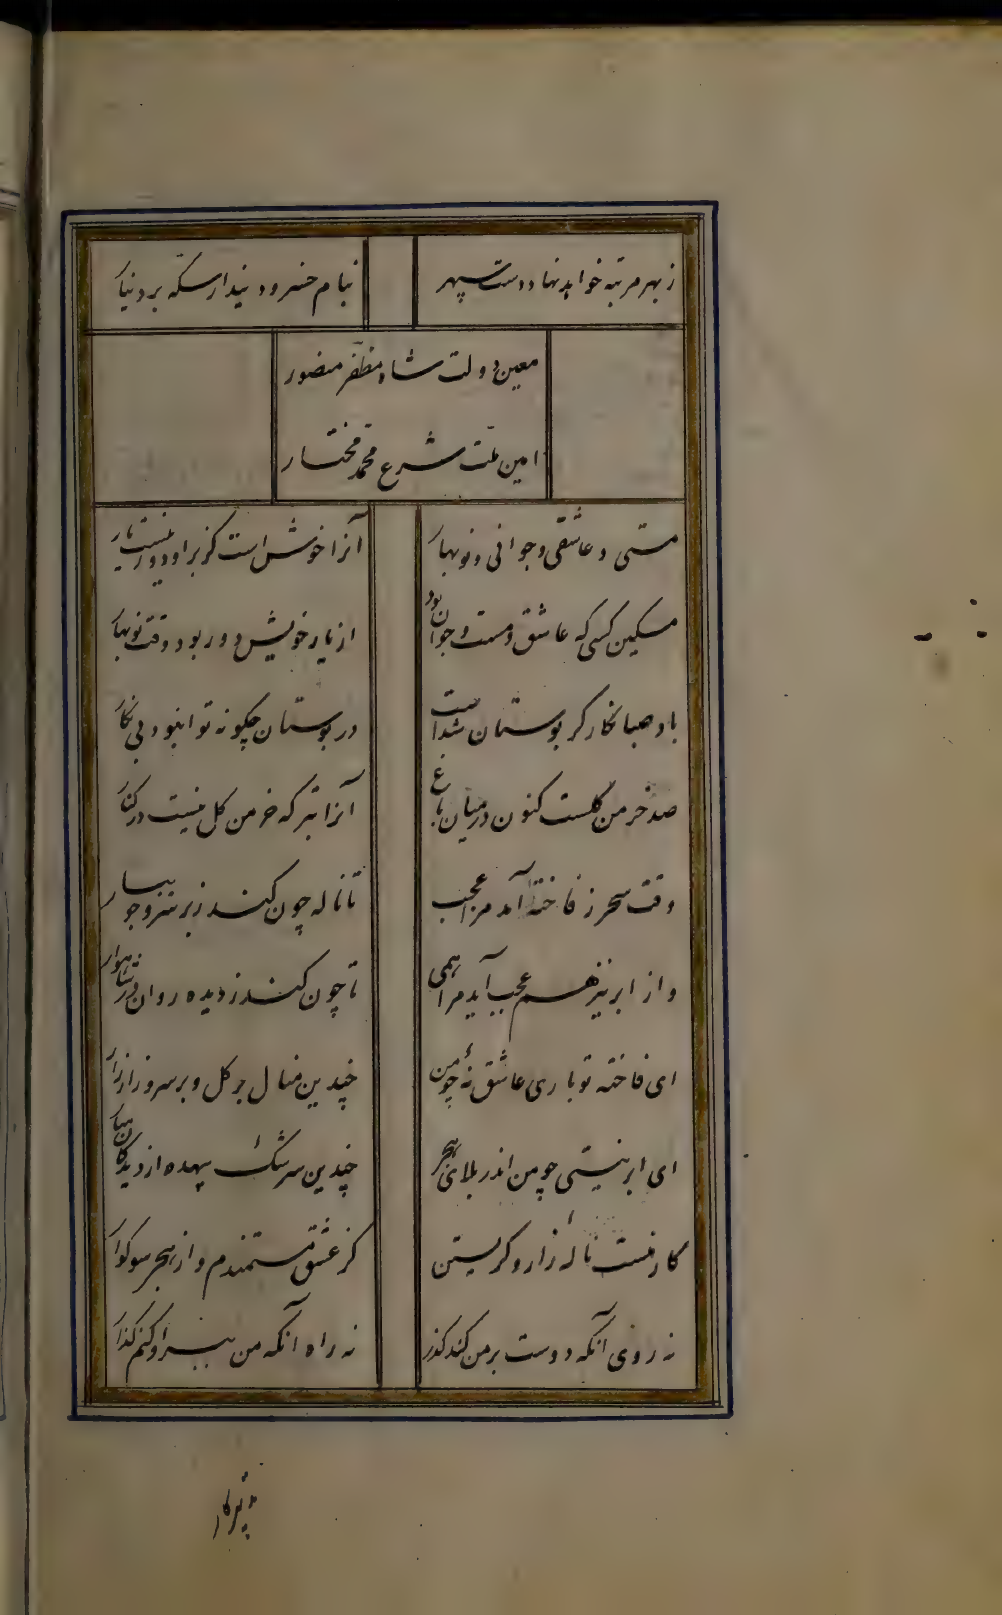 ز بهر مرتبه خواهد نهاد دست سپهر
بنام خسرو دیندار سکه بر دینار
معین دولت شاه مظفر منصور
امین ملت شرع محمد مختار
مستی و عاشقی و جوانی و نوبهار
آنرا خوش است کز بر او دور نیست یار
مسکین کسی که عاشق و مست و جوان بود
از یار خویش دور بود وقت نوبهار
باد صبا نکارکر بوستان شداست
در بوستان چکونه توان بود بی نکار
صد خرمن کلست کنون در میان باغ
آنرا بتر که خرمن کل نیست در کنار
وقت سحر ز فاخته آمد مرا عجب
تا ناله چون کند ز بر سرو جویبار
و از ابر نیز هم عجب آید مرا همی
تا چون کند ز دیده روان در شاهوار
ای فاخته تو باری عاشق نهٔ چو من
چندین منال بر کل و بر سرو زار زار
ای ابر نیستی چو من اندر بلای هجر
چندین سرشک بیهده از دیدکان مبار
کار منست ناله زار و کریستن
کز عشق مستمندم و از هجر سوکوار
نه روی آنکه دوست بر من کند کذر
نه راه آنکه من ببر او کنم کذار